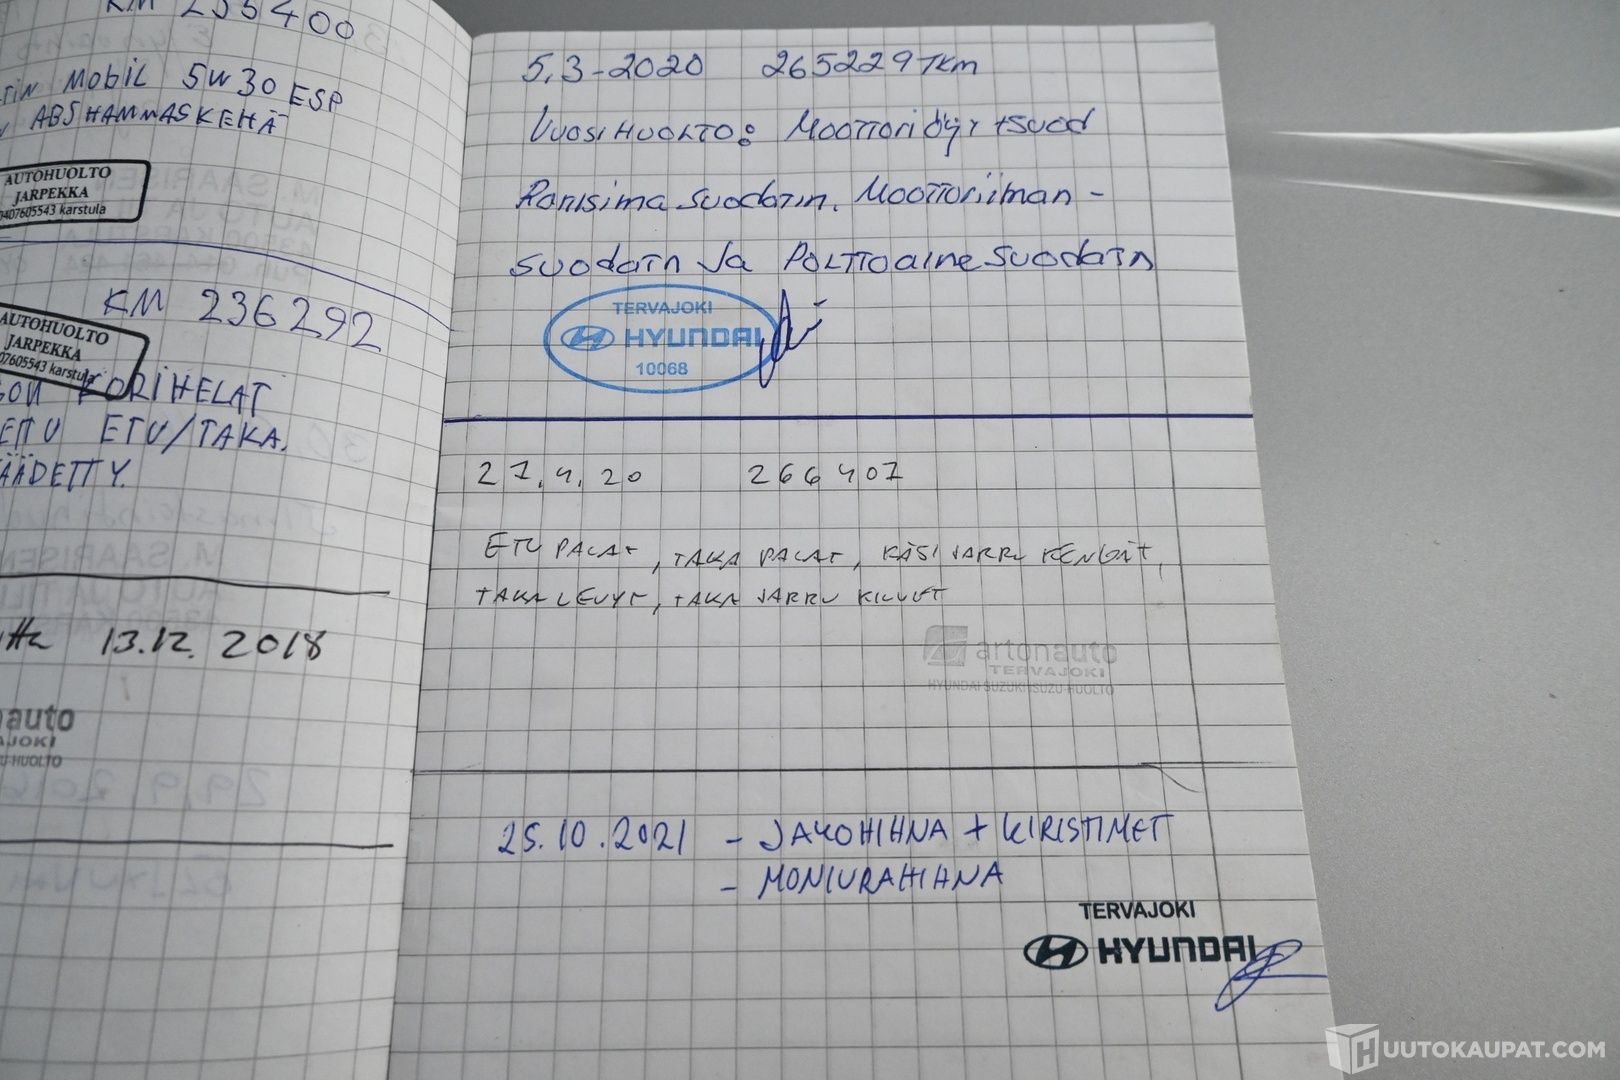 KM 235400
Mobil 5W30 ESP
ABS HAMMASKEHÄ
AUTOHUOLTO
JARPEKKA
0407605543 karstula
KM 236292
AUTOHUOLTO
JARPEKKA
07605543 karstula
KORIHELAT
ETU/TAKA.
ÄÄDETTY.
13.12.2018
auto
AJOKI
U-HUOLTO
5.3-2020 265229TKM
VUOSIHUOLTO: MOOTTORIÖljy+SUOD
Raitisilma suodatin. Moottoriilman-
suodatin Ja Polttoaine suodatin
TERVAJOKI
HYUNDAI
10068
27.4.20 266407
ETU PALAT, TAKA PALAT, KÄSI JARRU KENGÄT,
TAKA LEVYT, TAKA JARRU KILVET
artonauto
TERVAJOKI
HYUNDAI SUZUKI ISUZU-HUOLTO
25.10.2021 - JAKOHIHNA + KIRISTIMET
- MONIURAHIHNA
TERVAJOKI
HYUNDAI
HUUTOKAUPAT.COM